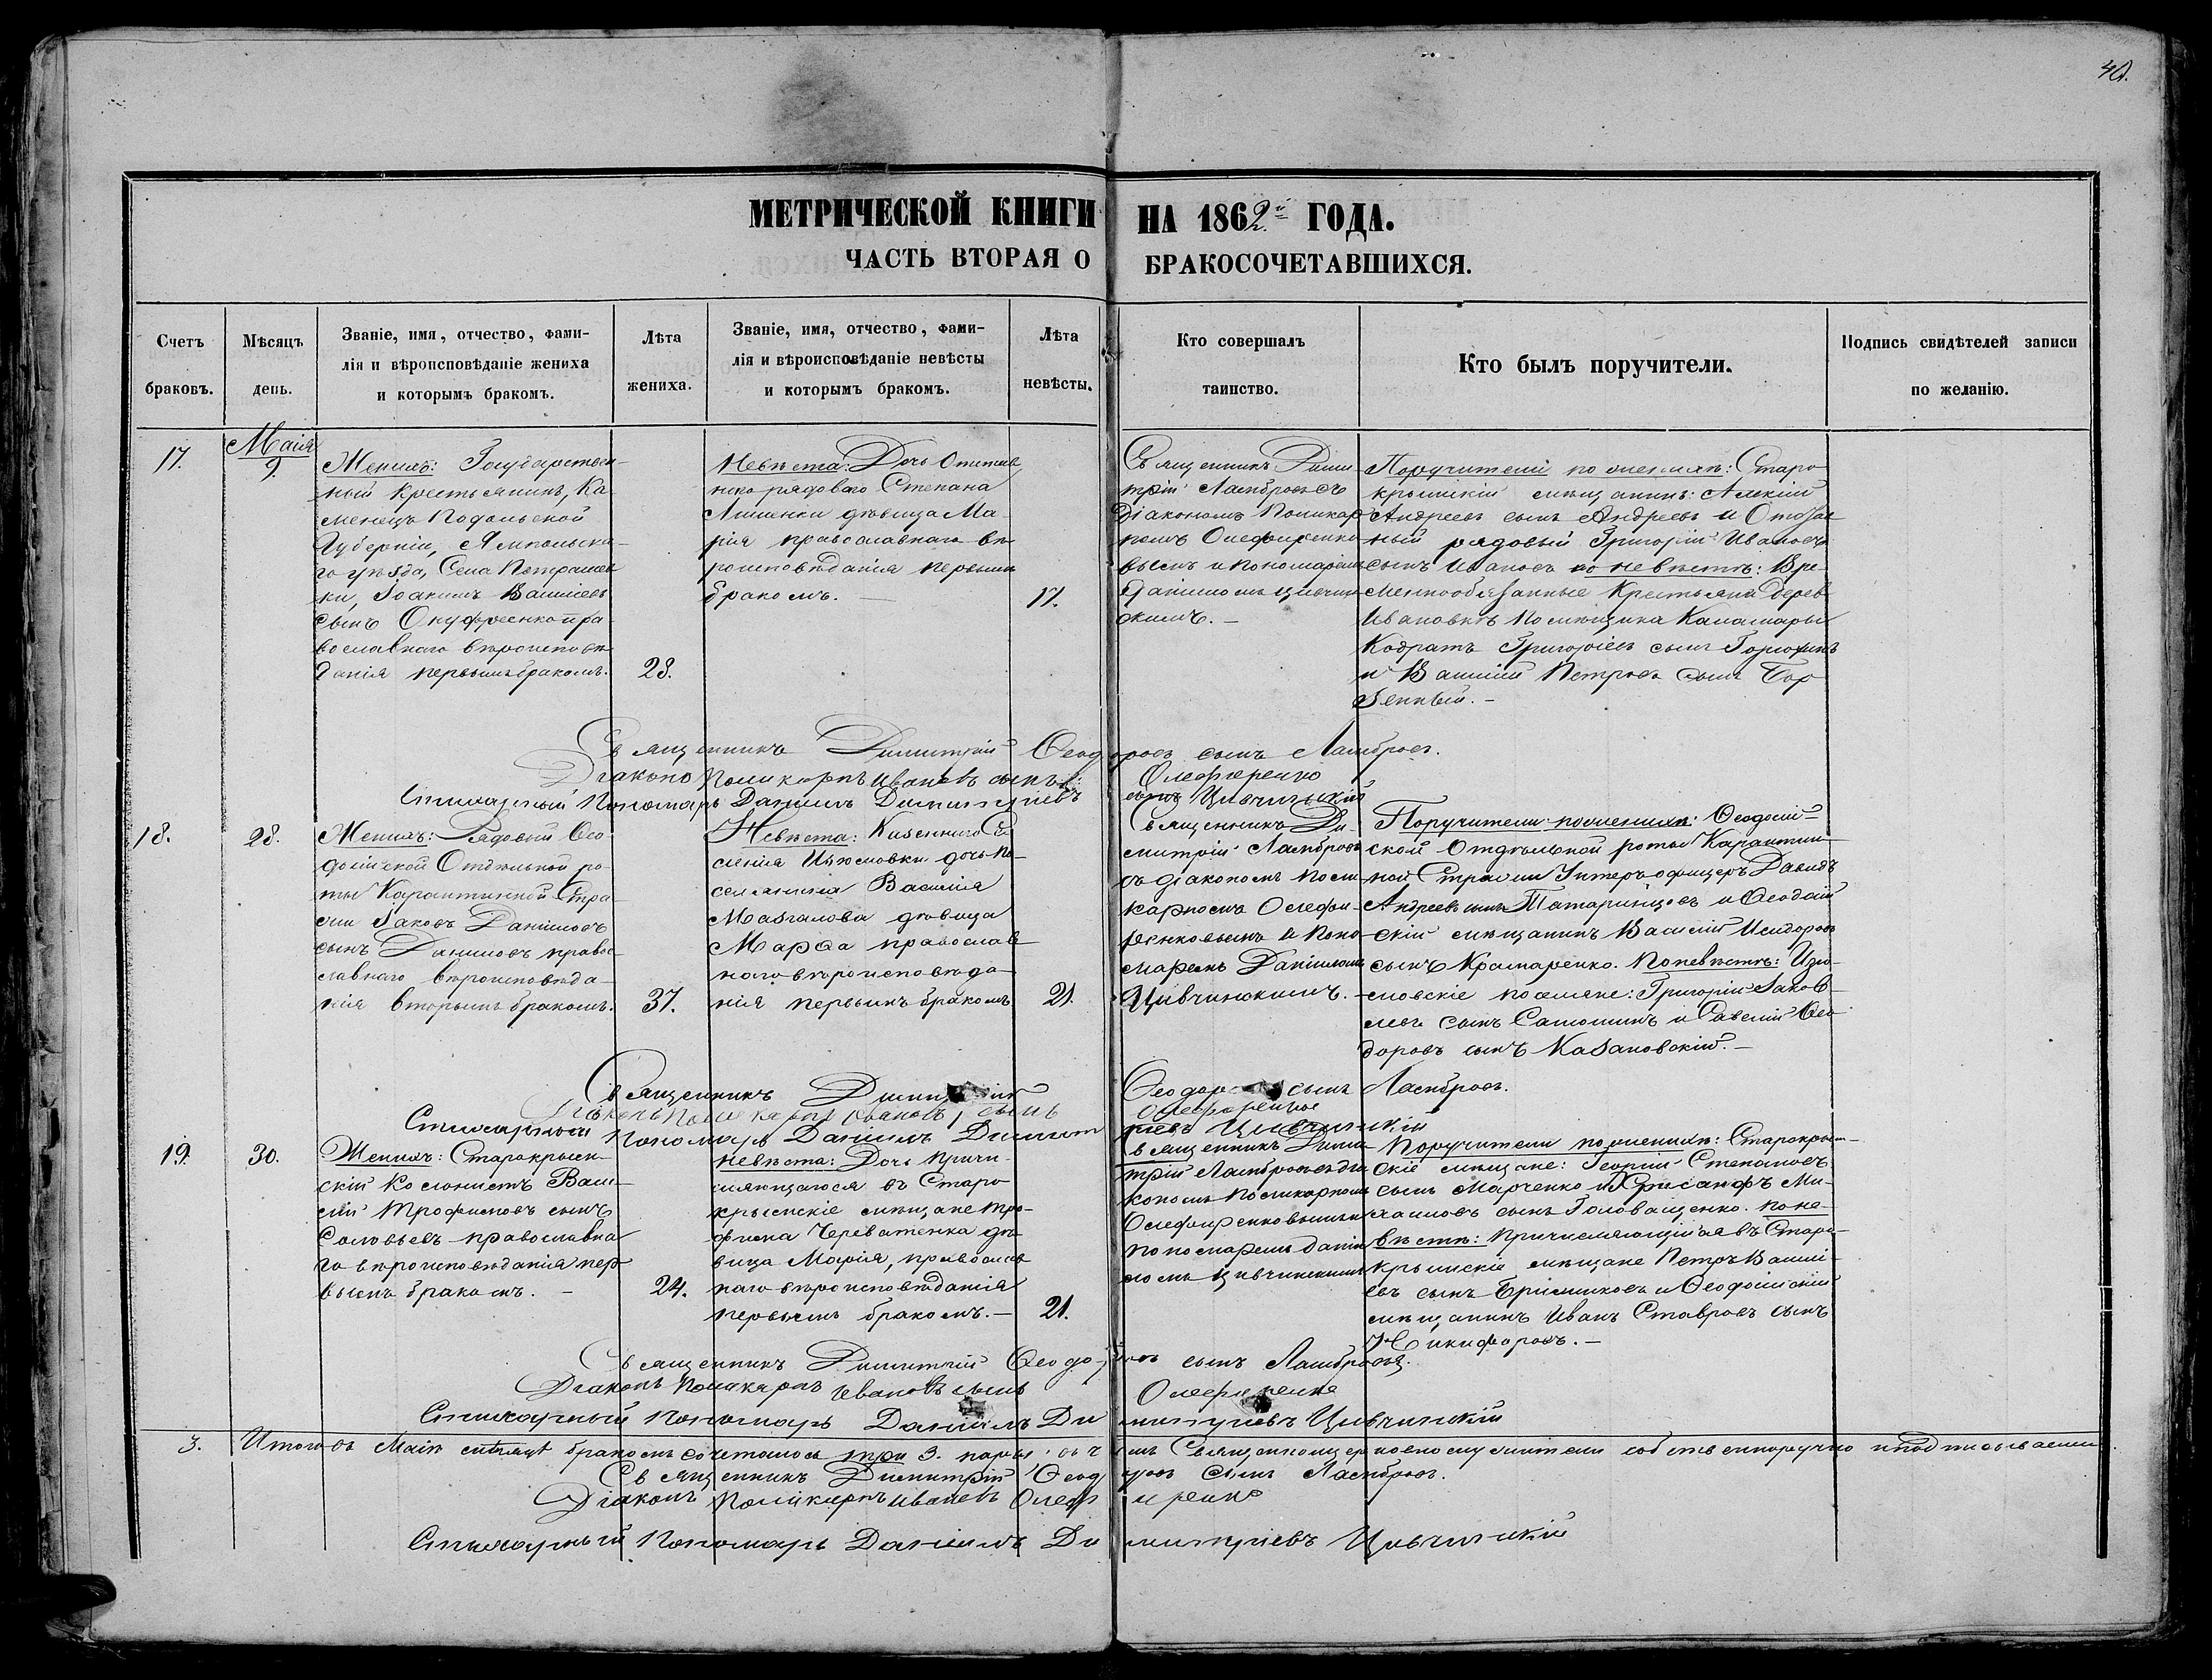 40.
МЕТРИЧЕСКОЙ КНИГИ НА 1862й ГОДА.
ЧАСТЬ ВТОРАЯ О БРАКОСОЧЕТАВШИХСЯ.
Счетъ браковъ.
Мѣсяцъ день.
Званіе, имя, отчество, фами-
лія и вѣроисповѣданіе жениха
и которымъ бракомъ.
Лѣта жениха.
Званіе, имя, отчество, фами-
лія и вѣроисповѣданіе невѣсты
и которымъ бракомъ.
Лѣта невѣсты.
Кто совершалъ
таинство.
Кто былъ поручители.
Подпись свидѣтелей записи
по желанію.
17.
Маія
9.
Женихъ: Государствен-
ный крестьянинъ, Ка
менецъ Подольской
Губерніи, Ямпольска-
го уѣзда, Села Петрашев
ки, Іоакимъ Василіевъ
сынъ Онуфреенко пра-
вославнаго вѣроисповѣ
данія первымъ бракомъ.
28.
Невѣста: Дочь
рядоваго Степана
дѣвица Ма-
рія православнаго вѣ
роисповѣданія первымъ
бракомъ. —
17.
Священникъ Дими
трій Ламбровъ съ
Діакономъ Поликар
помъ Олефиренко
вымъ и пономаремъ
Даніиломъ Цивчин
скимъ. —
Поручители по женихѣ: Старо
крымскій мѣщанинъ: Алексій
Андреевъ сынъ Андреевъ и
рядовый Григорій Ивановъ
сынъ Ивановъ по невѣстѣ: Вре-
меннообязанные Крестьяне Дерев
Ивановки Помѣщика Каламары
Кодратъ Григоріевъ сынъ
и Василій Петровъ сынъ Бор
зенный. —
Священникъ Димитрій Ѳеодоровъ сынъ Ламбровъ.
Діаконъ Поликарпъ Ивановъ сынъ Олефиренко
Стихарный Пономарь Даніилъ Димитріевъ сынъ Цивчинскій
18.
28.
Женихъ: Рядовый Ѳео-
досійской Отдѣльной ро-
ты Карантинной Стра
жи Яковъ Даниловъ
сынъ Даниловъ правос
славнаго вѣроисповѣда-
нія вторымъ бракомъ.
37.
Невѣста: Казеннаго Се
ленія Изюмовки дочь по-
селянина Василія
Мазгалова дѣвица
Марѳа православ
наго вѣроисповѣда-
нія первымъ бракомъ
21.
Священникъ Ди-
митрій Ламбровъ
съ діакономъ Поли-
карпомъ Олефи-
ренковымъ и Поно-
маремъ Даніиломъ
Цивчинскимъ. —
Поручители по женихѣ: Ѳеодосій-
ской Отдѣльной роты Карантин-
ной Стражи Унтеръ-офицеръ Давидъ
Андреевъ сынъ Татаринцовъ и Ѳеодосій
скій мѣщанинъ Василій Исидоровъ
сынъ Крамаренко. По невѣстѣ: Изю-
мовскіе поселяне: Григорій Яков-
левъ сынъ Самошинъ и Савелій Ѳео
доровъ сынъ Казановскій. —
Священникъ Димитрій Ѳеодоровъ сынъ Ламбровъ.
Діаконъ Поликарпъ Ивановъ сынъ Олефиренко
Стихарный Пономарь Даніилъ Димитріевъ Цивчинскій
19.
30.
Женихъ: Старокрым-
скій Колонистъ Васи-
лій Трофимовъ сынъ
Соловьевъ православна
го вѣроисповѣданія пер
вымъ бракомъ. —
24.
невѣста: Дочь причи-
сляющагося въ Старо
крымскіе мѣщане Тро-
фима Череватенка дѣ-
вица Марія, православ
наго вѣроисповѣданія
первымъ бракомъ. —
21.
Священникъ Дими
трій Ламбровъ съ діа
кономъ Поликарпомъ
Олефиренковымъ и
пономаремъ Даніи
ломъ Цивчинскимъ
Поручители по женихѣ: Старокрым-
скіе мѣщане: Георгій Степановъ
сынъ Марченко и Хрисанфъ Ми-
хаиловъ сынъ Головащенко. по не-
вѣстѣ: Причисляющійся въ Старо
крымскіе мѣщане Петръ Василі-
евъ сынъ и Ѳеодосійскій
мѣщанинъ Иванъ Ставровъ сынъ
Никифоровъ. —
Священникъ Димитрій Ѳеодоровъ сынъ Ламбровъ.
Діаконъ Поликарпъ Ивановъ сынъ Олефиренко
Стихарный Пономарь Даніилъ Димитріевъ Цивчинскій
3. Итого въ Маіѣ мѣсяцѣ бракомъ сочеталось три 3. пары. въ чемъ Священноцерковнослужители собственноручно и подписываемся.
Священникъ Димитрій Ѳеодоровъ сынъ Ламбровъ.
Діаконъ Поликарпъ Ивановъ Олефиренко
Стихарный Пономарь Даніилъ Димитріевъ Цивчинскій